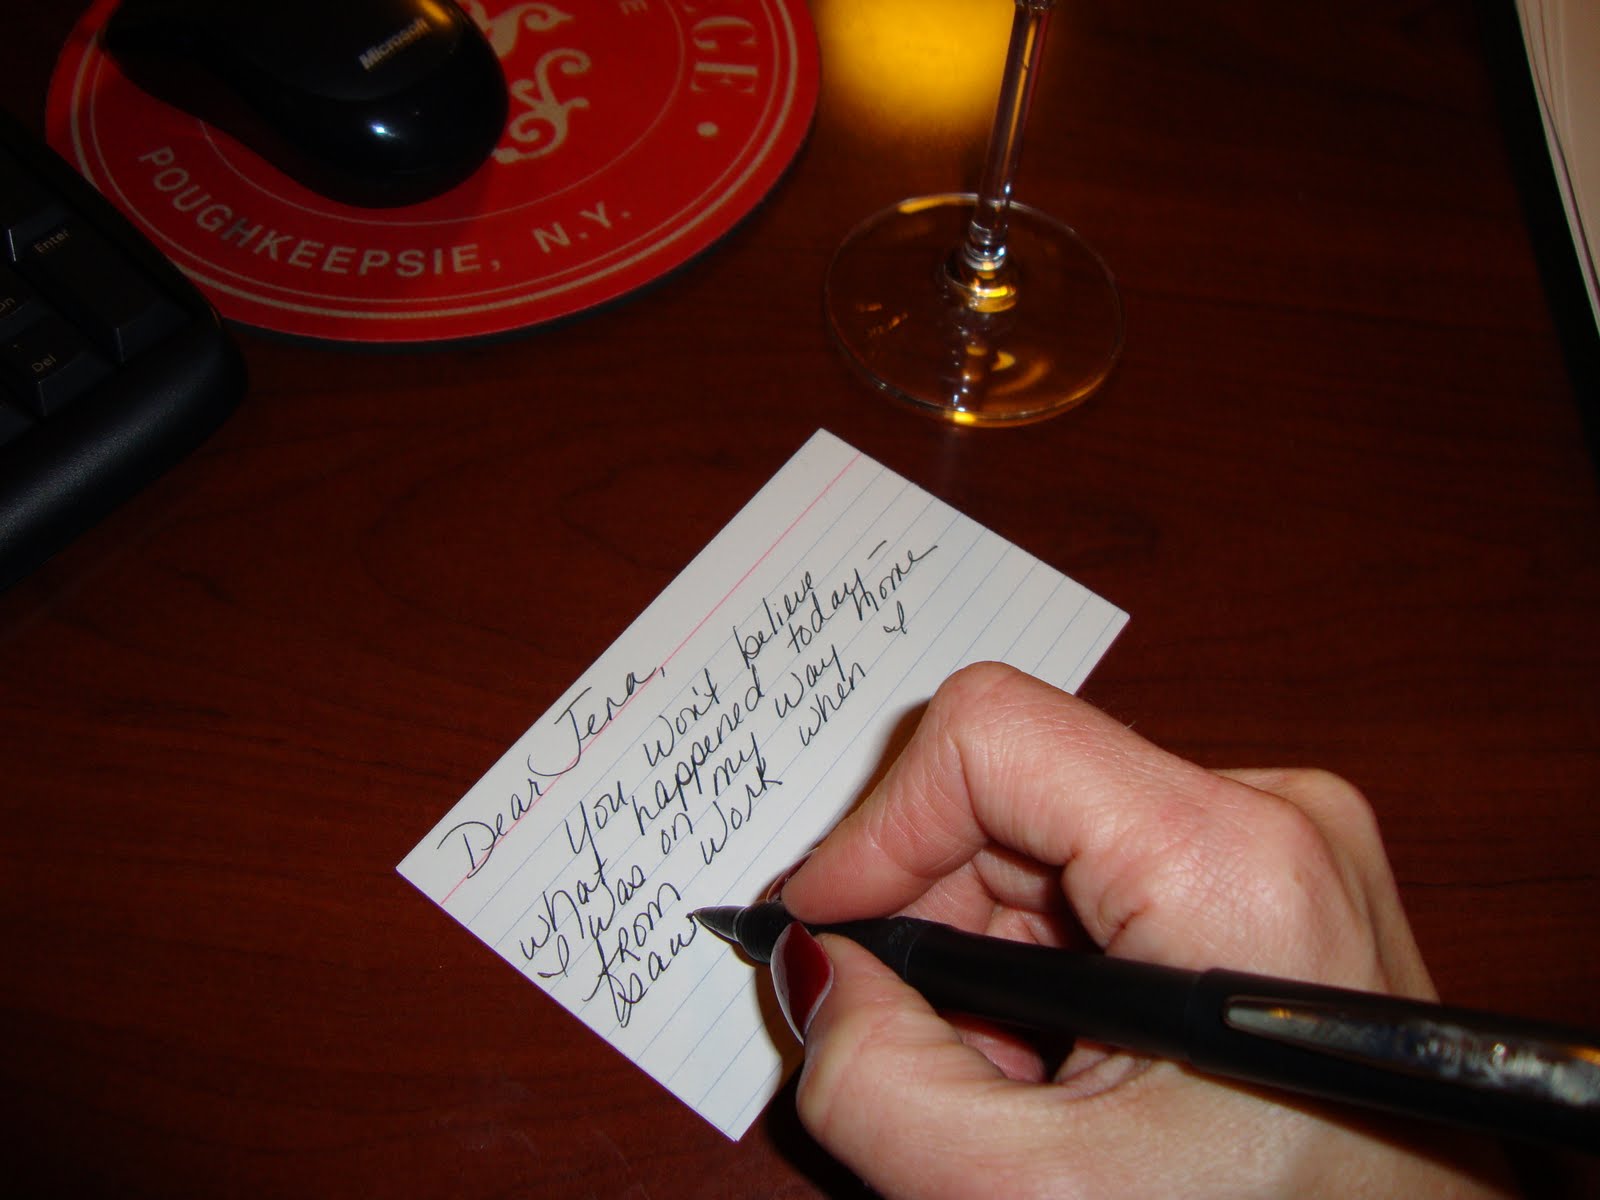 Microsoft
EGE •
E
POUGHKEEPSIE, N.Y.
Enter
Del
Dear Jena,
You won't believe
what happened today —
I was on my way home
from work when I
saw